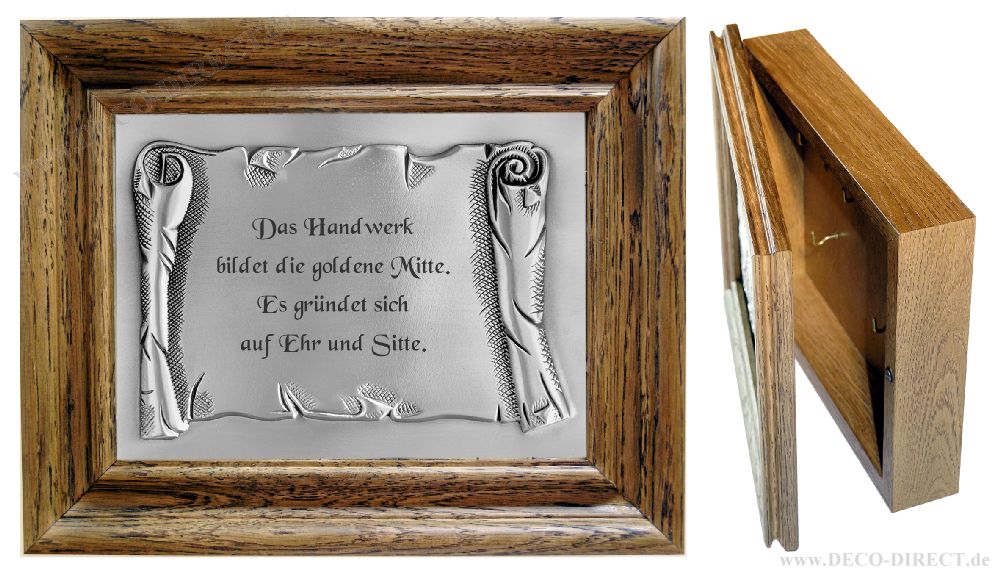 Das Handwerk
bildet die goldene Mitte.
Es gründet sich
auf Ehr und Sitte.
www.DECO-DIRECT.de